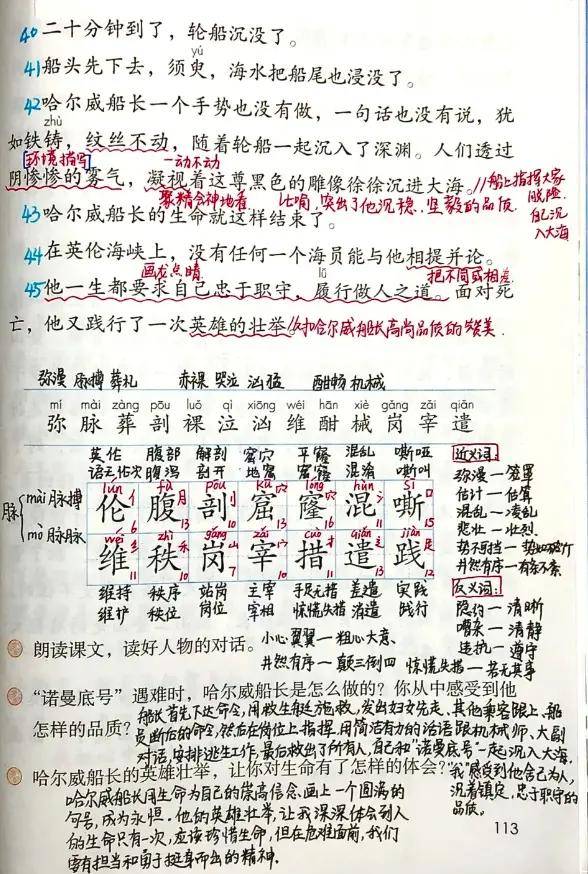 40 二十分钟到了，轮船沉没了。
yú
41 船头先下去，须臾，海水把船尾也浸没了。
42 哈尔威船长一个手势也没有做，一句话也没有说，犹
zhù
如铁铸，纹丝不动，随着轮船一起沉入了深渊。人们透过
环境描写 一动不动
阴惨惨的雾气，凝视着这尊黑色的雕像徐徐沉进大海。//船上指挥大家
聚精会神地看 比喻，突出了他沉稳、坚毅的品质. 脱险,
43 哈尔威船长的生命就这样结束了。 自己沉
入大海
44 在英伦海峡上，没有任何一个海员能与他相提并论。
画龙点睛 lǚ 把不同或相差
45 他一生都要求自己忠于职守，履行做人之道。面对死
亡，他又践行了一次英雄的壮举。//对哈尔威船长高尚品质的赞美.
弥漫 脉搏 葬礼 赤裸 哭泣 汹猛 酣畅 机械
mí mài zàng pōu luǒ qì xiōng wéi hān xiè gǎng zǎi qiǎn
弥 脉 葬 剖 裸 泣 汹 维 酣 械 岗 宰 遣
英伦 腹部 解剖 窟穴 平窿 混乱 嘶哑
语无伦次 腹泻 剖开 地窟 窟窿 混浊 嘶叫
lún fù pōu kū lóng hùn sī
伦 腹 剖 窟 窿 混 嘶
6 13 10 13 16 11 15
脉 mài 脉搏
mò 脉脉
wéi zhì gǎng zǎi cuò qiǎn jiàn
维 秩 岗 宰 措 遣 践
11 10 7 10 11 13 12
维持 秩序 站岗 主宰 手足无措 差遣 实践
维护 秩位 岗位 宰相 惊慌失措 消遣 践行
近义词：
弥漫—笼罩
估计—估算
混乱—凌乱
悲壮—壮烈
势不可挡—势如破竹
井然有序—有条不紊
反义词：
隐约—清晰
嘈杂—清静
违抗—遵守
小心翼翼—粗心大意、
朗读课文，读好人物的对话。
井然有序—颠三倒四 惊慌失措—若无其事
“诺曼底号”遇难时，哈尔威船长是怎么做的？你从中感受到他
怎样的品质？
船长首先下达命令,用救生艇运施救,发出妇女先走、其他乘客跟上、船
员断后的命令,然后在岗位上指挥,用简洁有力的话语跟机械师、大副
对话,安排逃生工作,最后救出了所有人,自己和“诺曼底号”一起沉入大海.
哈尔威船长的英雄壮举，让你对生命有了怎样的体会？
我感受到他舍己为人,
沉着镇定,忠于职守的
品质。
哈尔威船长用生命为自己的崇高信念.画上一个圆满的
句号,成为永恒.他的英雄壮举,让我深深体会到人
的生命只有一次,应该珍惜生命,但在危难面前,我们
要有担当和勇于挺身而出的精神.
113